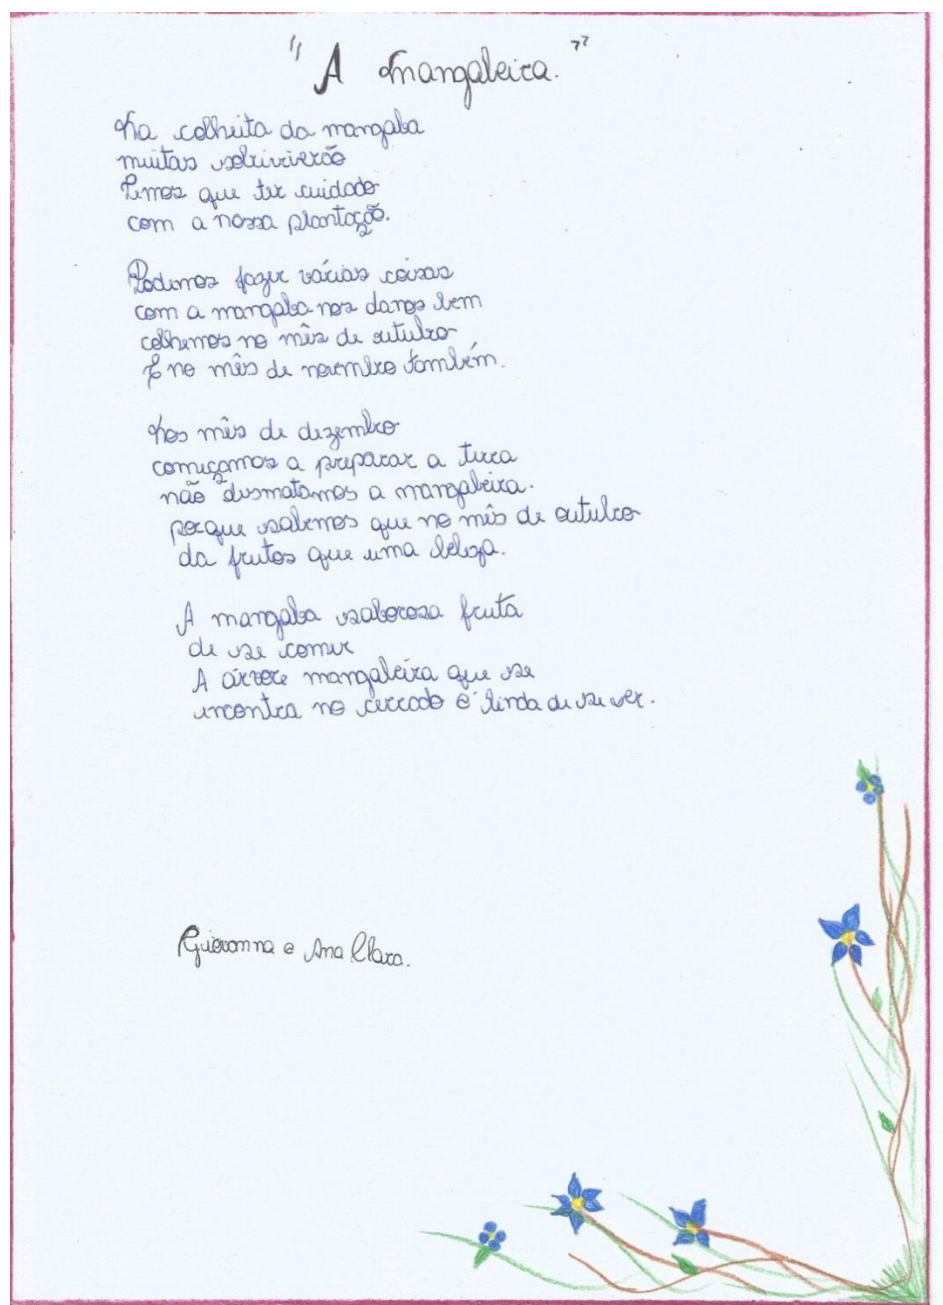 "A Mangabeira."
Na colheita da mangaba
muitas sobriviverão
Temos que ter cuidado
com a nossa plantação.
Podemos fazer várias coisas
com a mangaba nos damos bem
colhemos no mês de outubro
E no mês de novembro também.
Nos mês de dezembro
começamos a preparar a terra
não desmatamos a mangabeira.
porque sabemos que no mês de outubro
da frutos que uma beleza.
A mangaba saborosa fruta
de se comer
A árvore mangabeira que se
encontra no cerrado é linda de se ver.
Giovanna e Ana Clara.